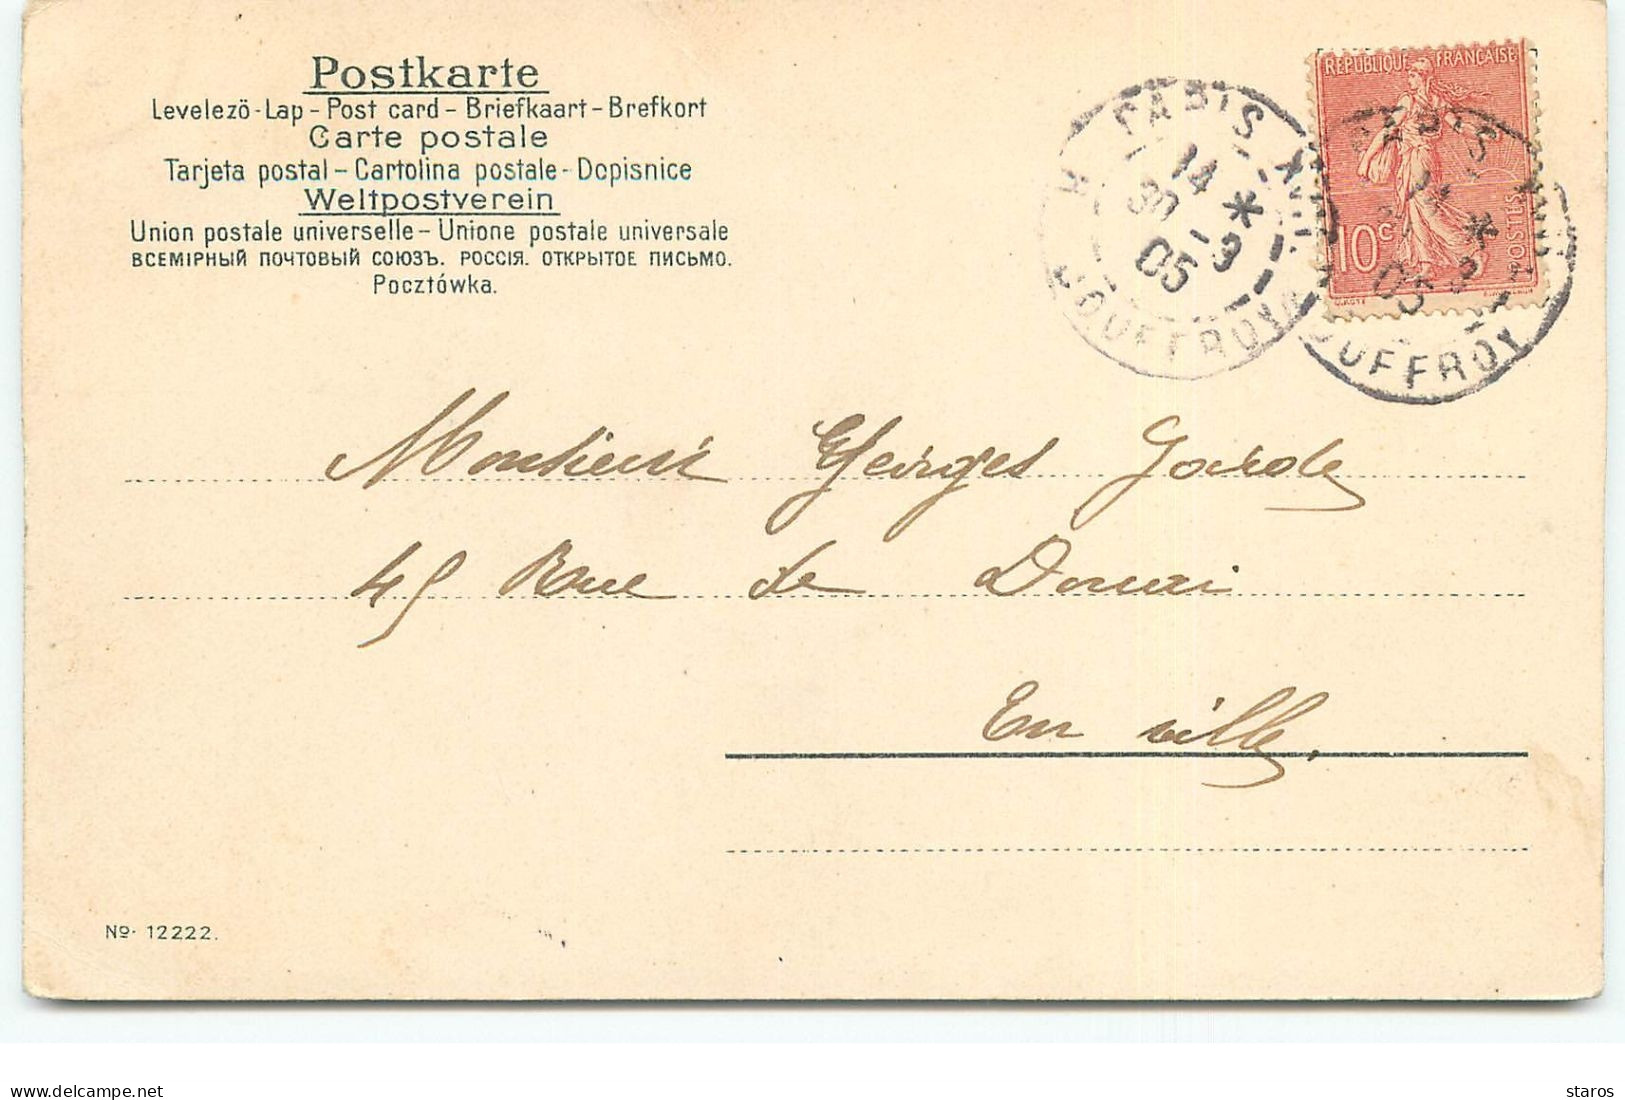 Postkarte
Levelező-Lap – Post card – Briefkaart – Brefkort
Carte postale
Tarjeta postal – Cartolina postale - Dopisnice
Weltpostverein
Union postale universelle – Unione postale universale
ВСЕМІРНЫЙ ПОЧТОВЫЙ СОЮЗЪ. РОССІЯ. ОТКРЫТОЕ ПИСЬМО.
Pocztówka.
REPUBLIQUE FRANÇAISE
10c
POSTES
PARIS XVII
14
30 - 9
05
R. JOUFFROY
PARIS XVII
05
JOUFFROY
Monsieur Georges
45 Rue de Douai
En ville.
No. 12222.
staros